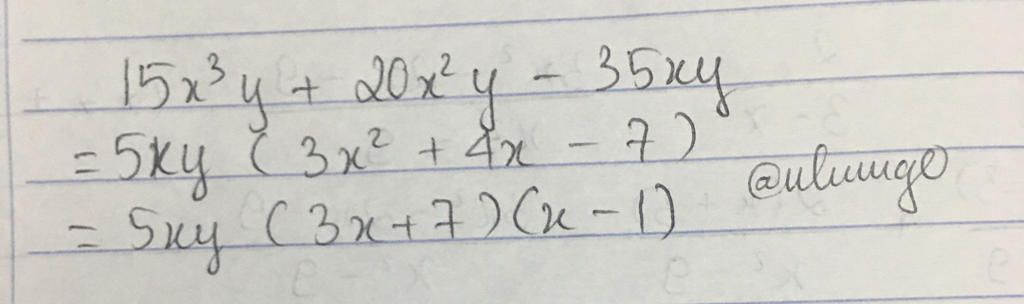 15x³y + 20x²y - 35xy
= 5xy (3x² + 4x - 7)
= 5xy (3x + 7)(x - 1)